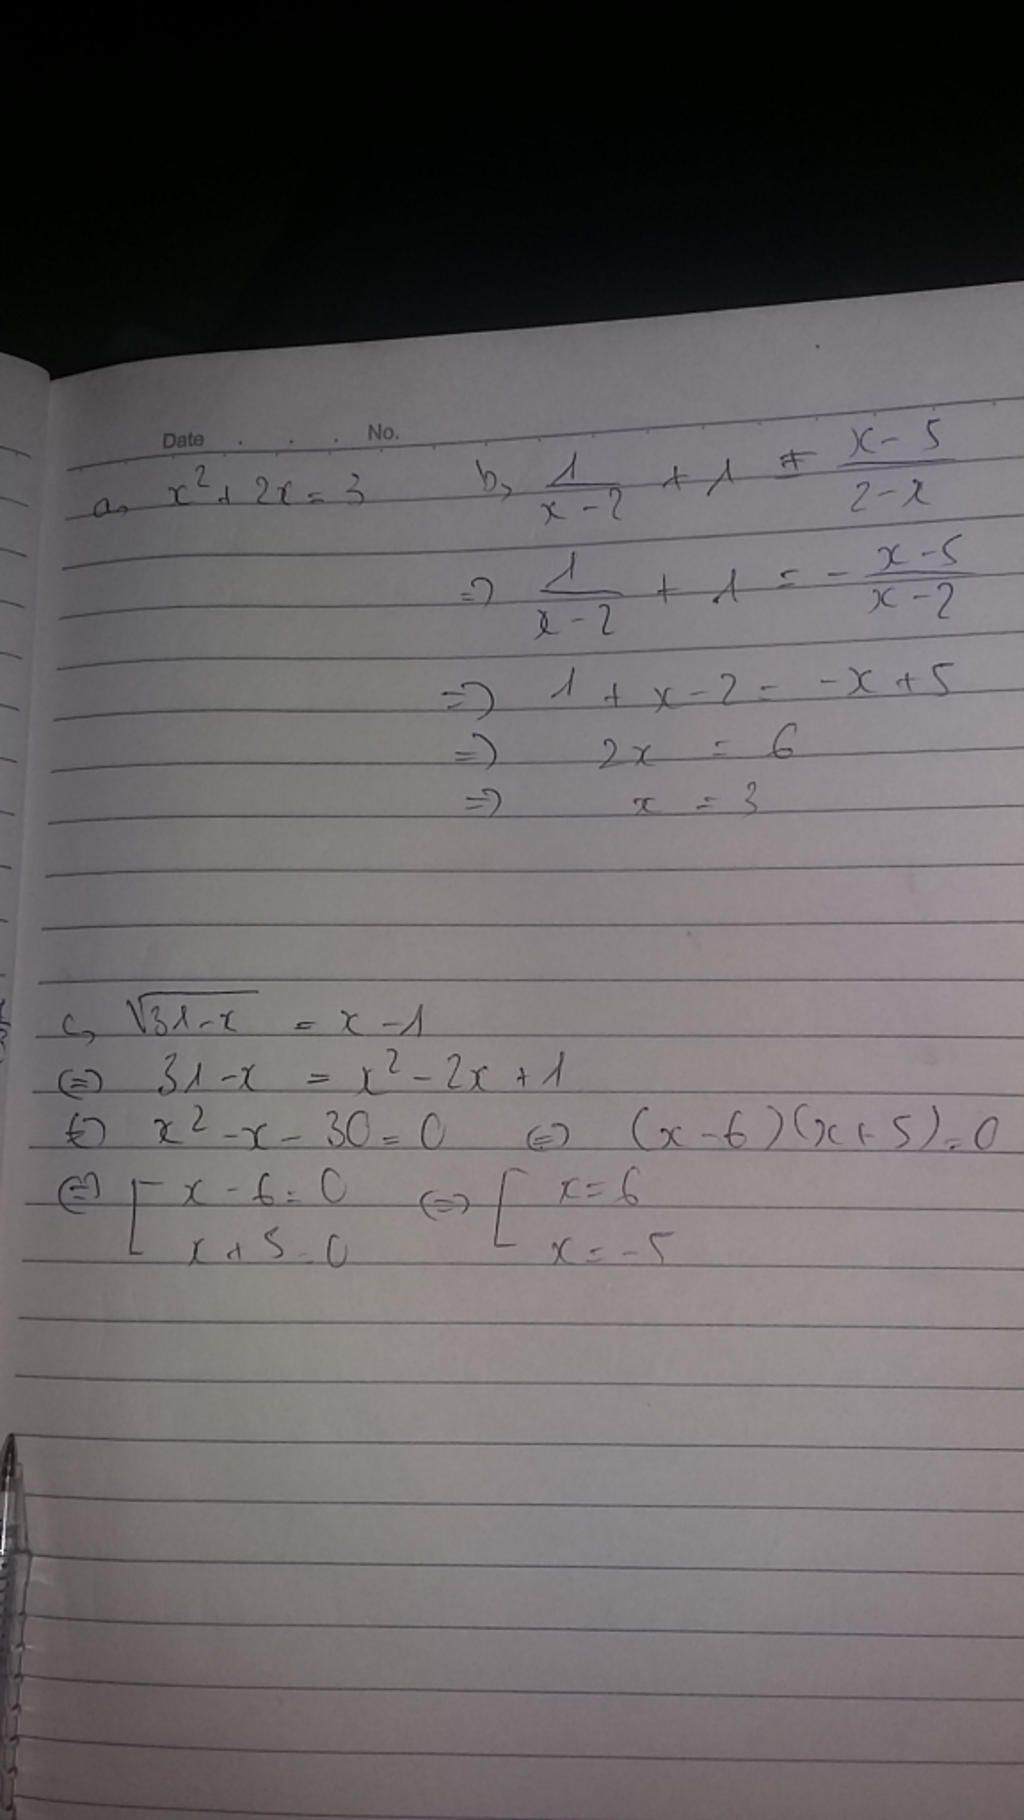 Date . . . No.
a, x² + 2x = 3
b, 1/(x-2) + 1 = (x-5)/(2-x)
=> 1/(x-2) + 1 = - (x-5)/(x-2)
=> 1 + x - 2 = -x + 5
=> 2x = 6
=> x = 3
c, √(31-x) = x - 1
<=> 31 - x = x² - 2x + 1
<=> x² - x - 30 = 0 <=> (x-6)(x+5) = 0
<=> [ x - 6 = 0 <=> [ x = 6
x + 5 = 0 x = -5